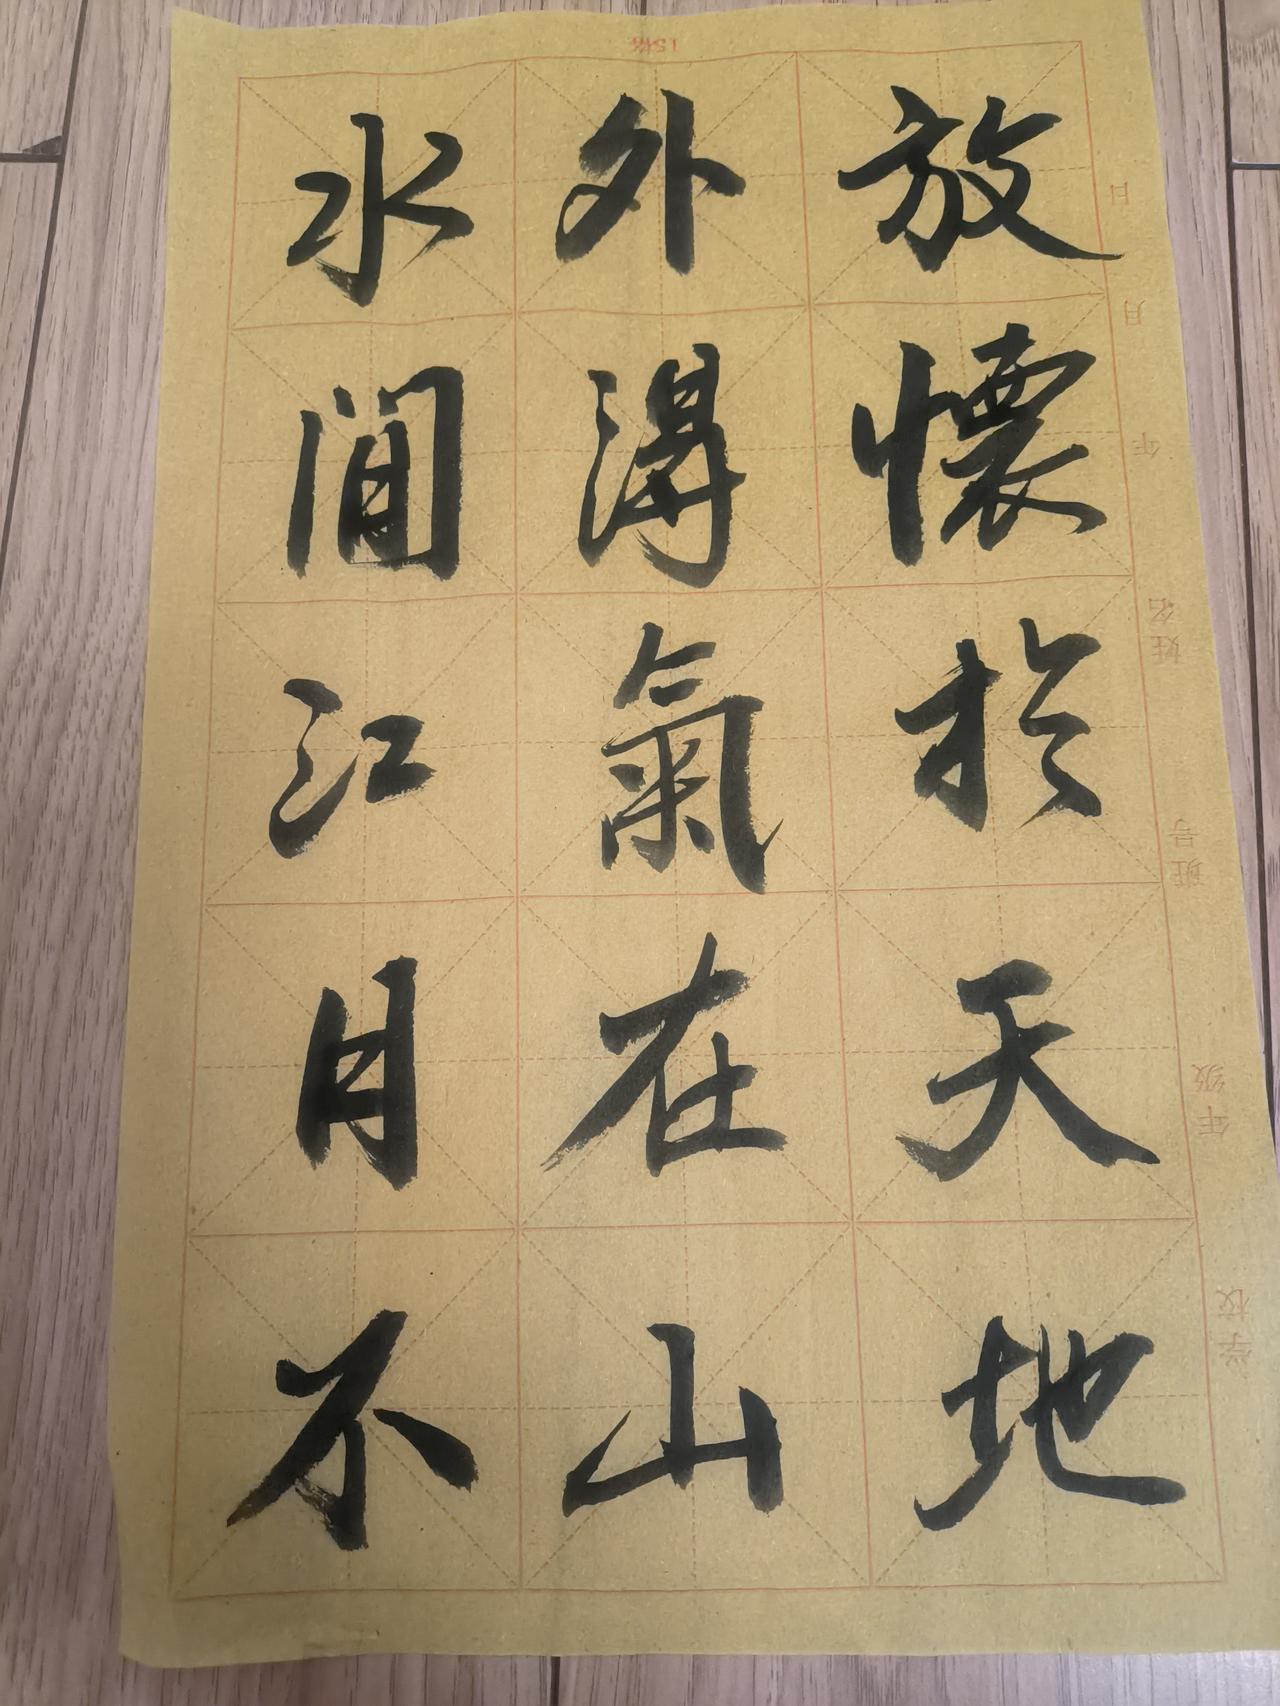 放懷於天地
外得氣在山
水間江月不
15格
学校
年级
班号
姓名
年
月
日